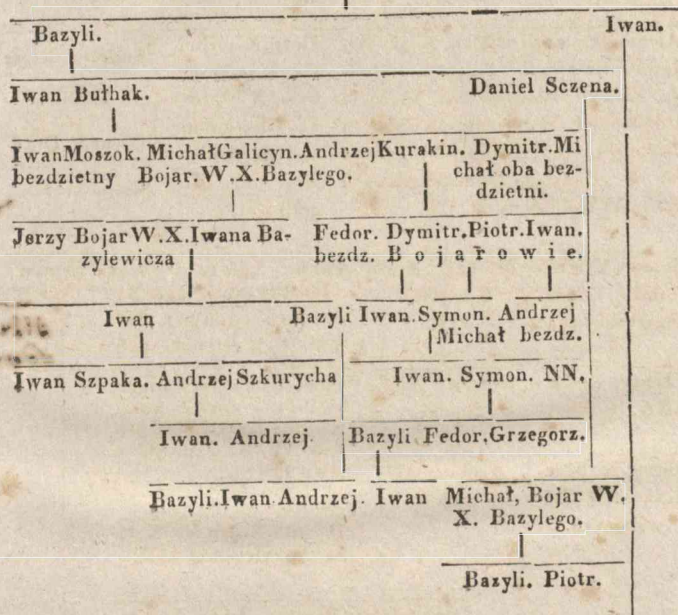 Bazyli. Iwan.
Iwan Bułhak. Daniel Sczena.
Iwan Moszok. Michał Galicyn. Andrzej Kurakin. Dymitr. Mi
bezdzietny Bojar. W. X. Bazylego. chał oba bez-
dzietni.
Jerzy Bojar W. X. Iwana Ba- Fedor. Dymitr. Piotr. Iwan.
zylewicza bezdz. Bojarowie.
Iwan Bazyli Iwan. Symon. Andrzej
Michał bezdz.
Iwan Szpaka. Andrzej Szkurycha Iwan. Symon. NN.
Iwan. Andrzej. Bazyli Fedor. Grzegorz.
Bazyli. Iwan. Andrzej. Iwan Michał, Bojar W.
X. Bazylego.
Bazyli. Piotr.